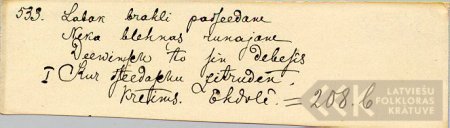 533. Labak brahli paſſeedani
Neka blehnas runajani
Deewinſch to ſin debeſis
I Kur ſeedaſchu zitruden.
Kretims. Ekdolē. = 208.6
LATVIEŠU
FOLKLORAS
KRĀTUVE